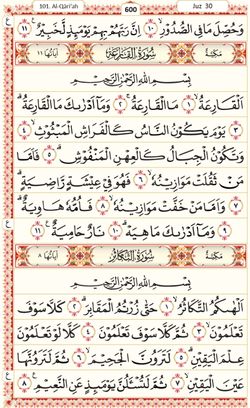 101. Al-Qāri'ah 600 Juz 30
وَحُصِّلَ مَا فِي الصُّدُورِ ۝١٠ إِنَّ رَبَّهُم بِهِمْ يَوْمَئِذٍ لَّخَبِيرٌ ۝١١
مكية سُورَةُ الْقَارِعَةِ آياتها ١١
بِسْمِ اللَّهِ الرَّحْمَٰنِ الرَّحِيمِ
الْقَارِعَةُ ۝١ مَا الْقَارِعَةُ ۝٢ وَمَا أَدْرَاكَ مَا الْقَارِعَةُ
۝٣ يَوْمَ يَكُونُ النَّاسُ كَالْفَرَاشِ الْمَبْثُوثِ ۝٤
وَتَكُونُ الْجِبَالُ كَالْعِهْنِ الْمَنفُوشِ ۝٥ فَأَمَّا
مَن ثَقُلَتْ مَوَازِينُهُ ۝٦ فَهُوَ فِي عِيشَةٍ رَّاضِيَةٍ
۝٧ وَأَمَّا مَنْ خَفَّتْ مَوَازِينُهُ ۝٨ فَأُمُّهُ هَاوِيَةٌ
۝٩ وَمَا أَدْرَاكَ مَا هِيَهْ ۝١٠ نَارٌ حَامِيَةٌ ۝١١
مكية سُورَةُ التَّكَاثُرِ آياتها ٨
بِسْمِ اللَّهِ الرَّحْمَٰنِ الرَّحِيمِ
أَلْهَاكُمُ التَّكَاثُرُ ۝١ حَتَّىٰ زُرْتُمُ الْمَقَابِرَ ۝٢ كَلَّا سَوْفَ
تَعْلَمُونَ ۝٣ ثُمَّ كَلَّا سَوْفَ تَعْلَمُونَ ۝٤ كَلَّا لَوْ تَعْلَمُونَ
عِلْمَ الْيَقِينِ ۝٥ لَتَرَوُنَّ الْجَحِيمَ ۝٦ ثُمَّ لَتَرَوُنَّهَا
عَيْنَ الْيَقِينِ ۝٧ ثُمَّ لَتُسْأَلُنَّ يَوْمَئِذٍ عَنِ النَّعِيمِ ۝٨